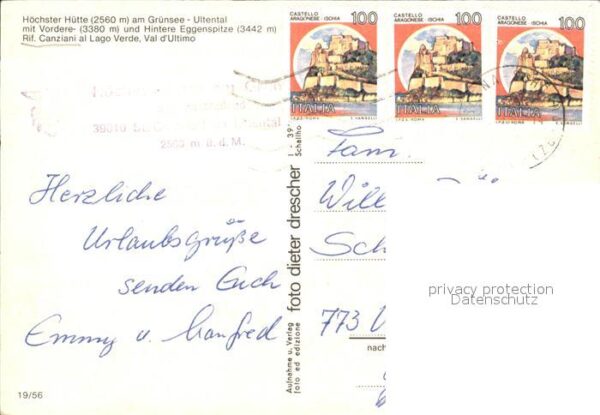 Höchster Hütte (2560 m) am Grünsee - Ultental
mit Vordere- (3380 m) und Hintere Eggenspitze (3442 m)
Rif. Canziani al Lago Verde, Val d'Ultimo
CASTELLO ARAGONESE - ISCHIA 100
ITALIA
I.P.Z.S. ROMA E. VANGELLI
CASTELLO ARAGONESE - ISCHIA 100
ITALIA
I.P.Z.S. ROMA E. VANGELLI
CASTELLO ARAGONESE - ISCHIA 100
ITALIA
I.P.Z.S. ROMA E. VANGELLI
39010 St.
2560 m ü. d. M.
Herzliche
Urlaubsgrüße
senden Euch
Emmy u. Manfred
19/56
Aufnahme u. Verlag
foto ed edizione
foto dieter drescher
I - 39
Schallho
Fam.
Will
Sch
773 V
nach
privacy protection
Datenschutz